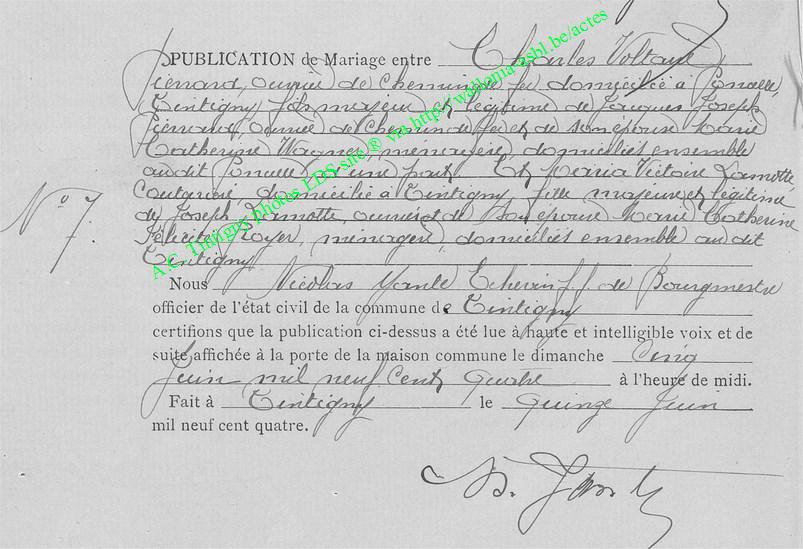 PUBLICATION de Mariage entre Charles Voltaire
Piérard, ouvrier de chemin de fer domicilié à Poncelle,
Tintigny fils majeur et légitime de Jacques Joseph
Piérard, ouvrier de chemin de fer et de son épouse Marie
Catherine Wagner, ménagère, domiciliés ensemble
audit Poncelle d'une part Et Maria Victoire Lamotte,
Couturière domiciliée à Tintigny fille majeure et légitime
de Joseph Lamotte, ouvrier et de son épouse Marie Catherine
Félicité Royer, ménagère, domiciliés ensemble au dit
Tintigny
N° 7.
Nous Nicolas Yante Echevin f.f. de Bourgmestre
officier de l'état civil de la commune de Tintigny
certifions que la publication ci-dessus a été lue à haute et intelligible voix et de
suite affichée à la porte de la maison commune le dimanche Cinq
Juin mil neuf Cent quatre à l'heure de midi.
Fait à Tintigny le quinze Juin
mil neuf cent quatre.
A.C. Tintigny photos LDS site ® via http://wallonia-asbl.be/actes